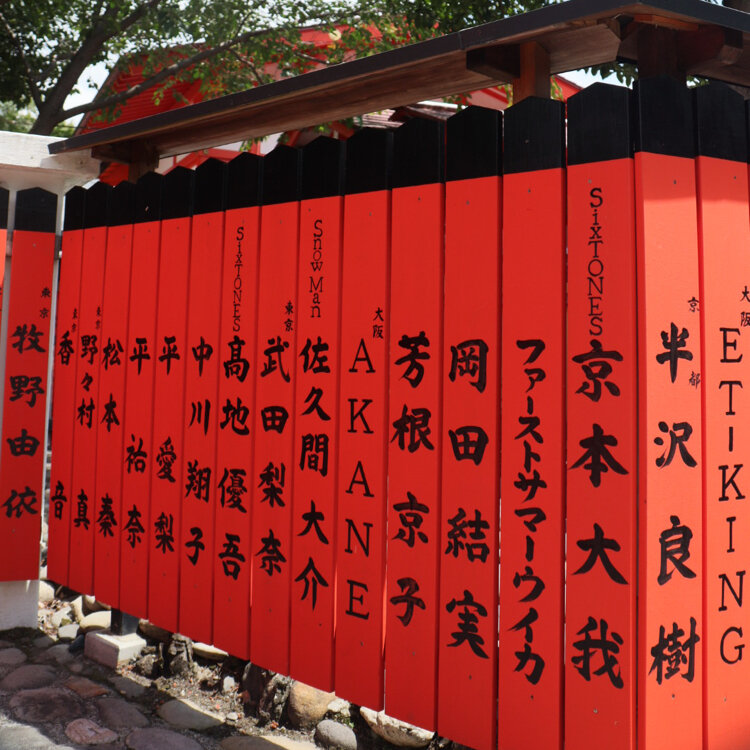 大阪
ET-KING
京都
半沢良樹
SixTONES
京本大我
ファーストサマーウイカ
岡田結実
芳根京子
大阪
AKANE
Snow Man
佐久間大介
東京
武田梨奈
SixTONES
髙地優吾
中川翔子
平愛梨
平祐奈
松本
東京
野々村真
東京
香音
東京
牧野由依